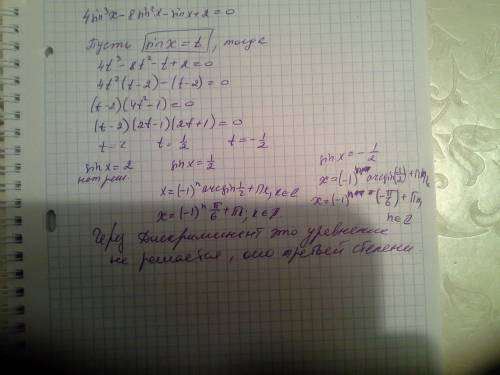 4sin³x - 8sin²x - sinx + 2 = 0
Пусть sinx = t, тогда
4t³ - 8t² - t + 2 = 0
4t²(t-2) - (t-2) = 0
(t-2)(4t²-1) = 0
(t-2)(2t-1)(2t+1) = 0
t = 2 t = 1/2 t = -1/2
sinx = 2 sinx = 1/2 sinx = -1/2
нет реш.
x = (-1)ⁿ arcsin 1/2 + Πk, k∈Z
x = (-1)ⁿ π/6 + Π, k∈Z
x = (-1) arcsin
x = (-1) (-π/6) + Π
n∈Z
Через дискриминант это уравнение
не решается, оно третьей степени